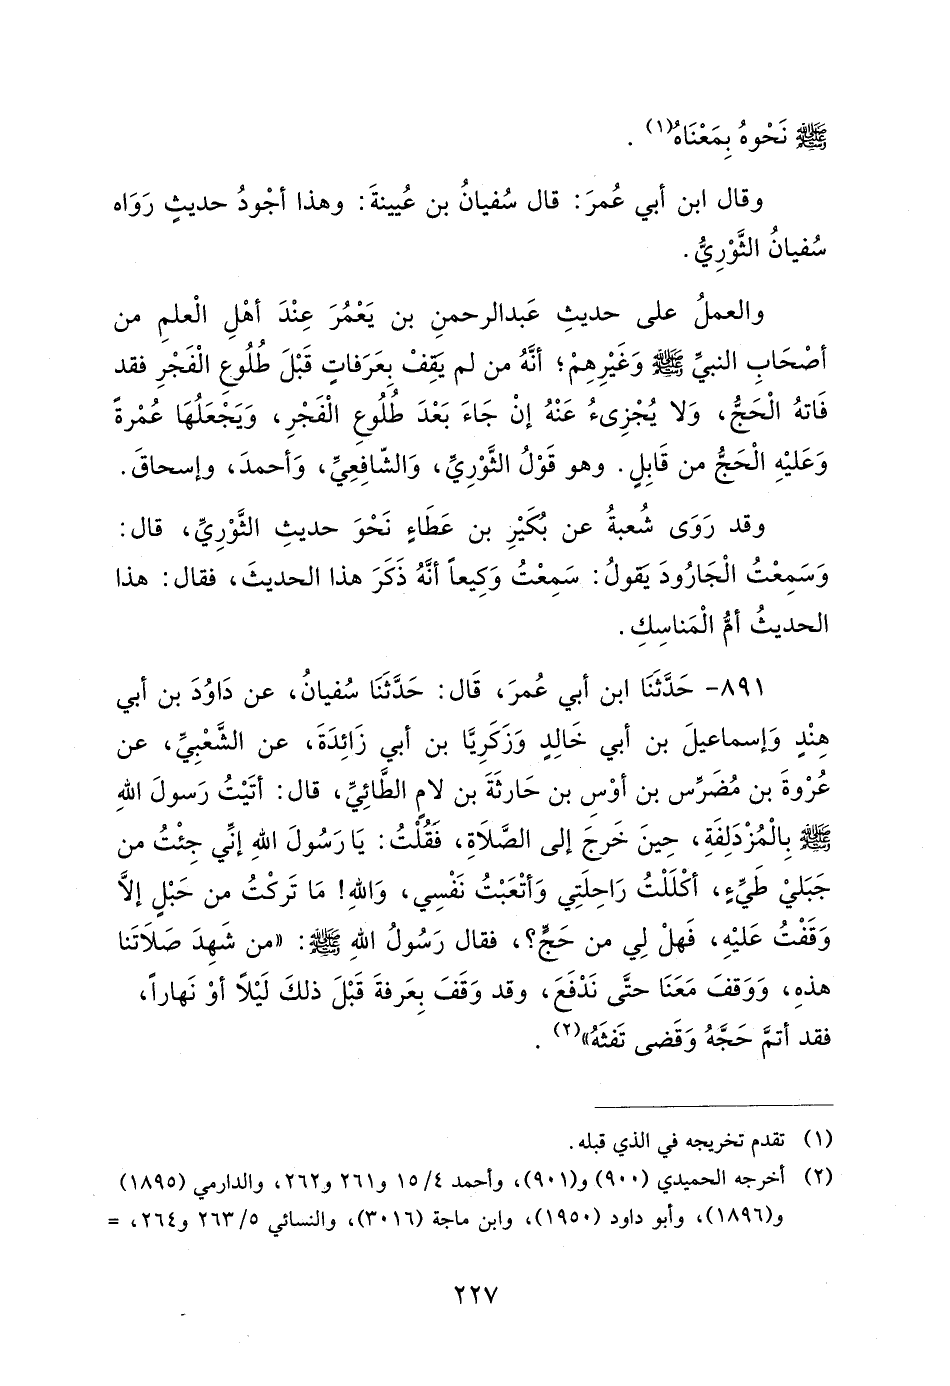 ﷺ نَحْوهُ بِمَعْنَاهُ(١) .
وقال ابن أبي عُمرَ: قال سُفيانُ بن عُيينةَ: وهذا أجْودُ حديثٍ رَوَاه
سُفيانُ الثَّوْرِيُّ.
والعملُ على حديثِ عَبدالرحمنِ بن يَعْمُرَ عِنْدَ أهْلِ الْعلمِ من
أصْحَابِ النبيِّ ﷺ وَغَيْرِهِمْ؛ أنَّهُ من لم يَقِفْ بِعَرَفاتٍ قَبْلَ طُلُوعِ الْفَجْرِ فقد
فَاتهُ الْحَجُّ، وَلا يُجْزِىءُ عَنْهُ إنْ جَاءَ بَعْدَ طُلُوعِ الْفَجْرِ، وَيَجْعَلُهَا عُمْرةً
وَعَليْهِ الْحَجُّ من قَابِلٍ. وهو قَوْلُ الثَّوْرِيِّ، وَالشّافِعِيِّ، وَأحمدَ، وإسحاقَ.
وقد رَوَى شُعبةُ عن بُكَيْرِ بن عَطَاءٍ نَحْوَ حديثِ الثَّوْرِيِّ، قال:
وَسَمِعْتُ الْجَارُودَ يَقولُ: سَمِعْتُ وَكِيعاً أنَّهُ ذَكَرَ هذا الحديثَ، فقال: هذا
الحديثُ أمُّ الْمَناسِكِ.
٨٩١- حَدَّثَنَا ابن أبي عُمرَ، قَال: حَدَّثَنَا سُفيانُ، عن دَاوُدَ بن أبي
هِنْدٍ وَإسماعيلَ بن أبي خَالِدٍ وَزَكَرِيَّا بن أبي زَائِدَةَ، عن الشَّعْبِيِّ، عن
عُرْوةَ بن مُضَرِّس بن أوْسِ بن حَارثَةَ بن لامٍ الطَّائِيِّ، قال: أتَيْتُ رَسولَ اللهِ
ﷺ بِالْمُزْدَلِفَةِ، حِينَ خَرجَ إلى الصَّلَاةِ، فَقُلْتُ: يَا رَسُولَ اللهِ إنِّي جِئْتُ من
جَبَليْ طَيِّءٍ، أكْلَلْتُ رَاحِلَتِي وَأتْعَبْتُ نَفْسِي، وَاللهِ! مَا تَركْتُ من حَبْلٍ إلَّا
وَقَفْتُ عَليْهِ، فَهلْ لِي من حَجٍّ؟، فقال رَسُولُ اللهِ ﷺ: «من شَهِدَ صَلَاتَنا
هذهِ، وَوَقفَ مَعَنَا حتَّى نَدْفَعَ، وقد وَقَفَ بِعَرفةَ قَبْلَ ذلكَ لَيْلًا أوْ نَهاراً،
فقد أتمَّ حَجَّهُ وَقَضى تَفثَهُ»(٢) .
(١) تقدم تخريجه في الذي قبله.
(٢) أخرجه الحميدي (٩٠٠) و(٩٠١)، وأحمد ٤/ ١٥ و٢٦١ و٢٦٢، والدارمي (١٨٩٥)
و(١٨٩٦)، وأبو داود (١٩٥٠)، وابن ماجة (٣٠١٦)، والنسائي ٥/ ٢٦٣ و٢٦٤، =
٢٢٧